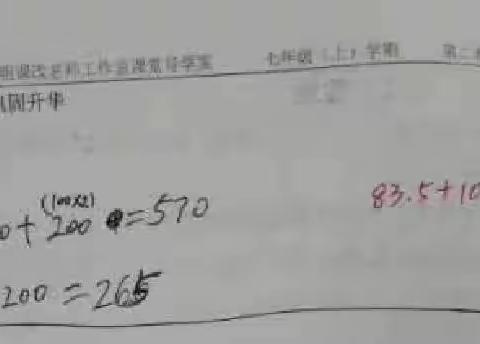 课改名师工作室课堂导学案 七年级（上）学期 第二
巩固升华
(100×2)
0+200=570 83.5+10
200=265